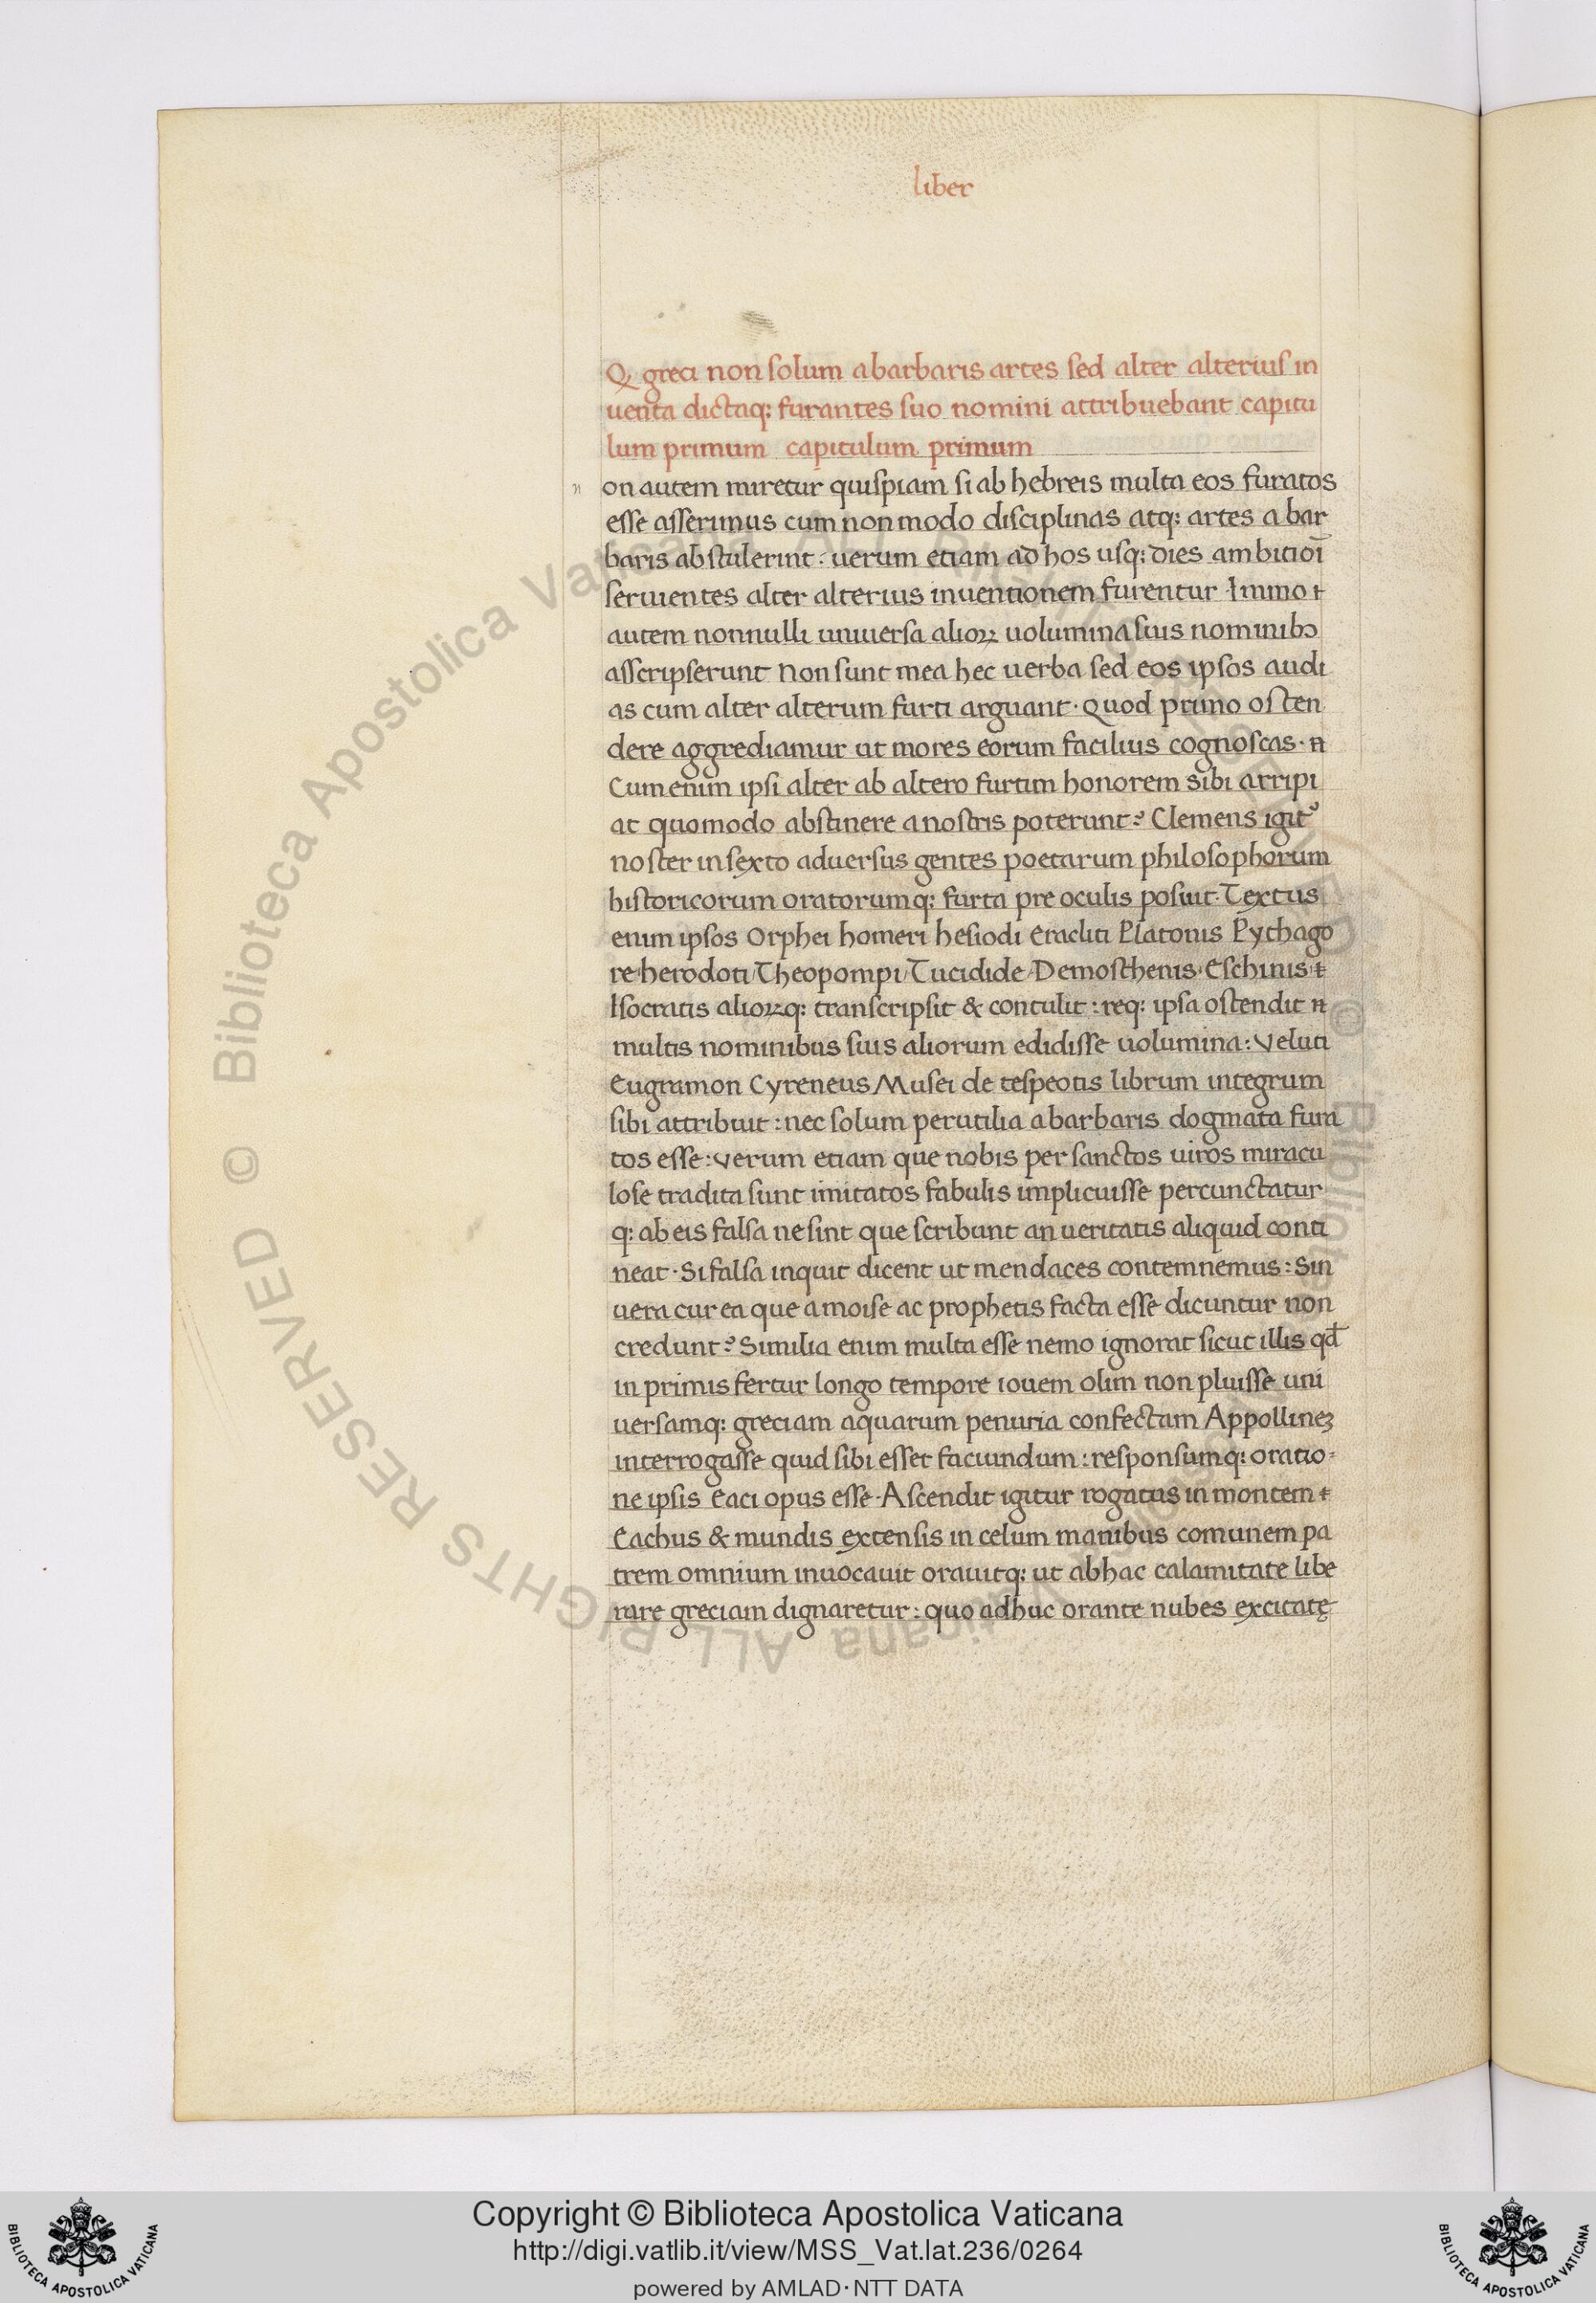 liber
Q greci non solum abarbaris artes sed alter alterius in
uenta dictaq: furantes suo nomini attribuebant capitu
lum primum capitulum primum
n
on autem miretur quispiam si ab hebreis multa eos furatos
esse asserimus cum non modo disciplinas atq: artes a bar
baris abstulerint : uerum etiam ad hos usq: dies ambitioī
seruientes alter alterius inuentionem furentur · Immo
autem nonnulli uniuersa alioꝝ uolumina suis nominibꝰ
asscripserunt Non sunt mea hec uerba sed eos ipsos audi
as cum alter alterum furti arguant · Quod primo osten
dere aggrediamur ut mores eorum facilius cognoscas ·
Cum enim ipsi alter ab altero furtim honorem sibi arripi
at quomodo abstinere anostris poterunt? Clemens igitᵘ
noster in sexto aduersus gentes poetarum philosophorum
historicorum oratorumq: furta pre oculis posuit · Textus
enim ipsos Orphei homeri hesiodi eracliti Platonis Pythago
re herodoti Theopompi Tucidide Demosthenis · Eschinis
Isocratis alioꝝq: transcripsit & contulit : req: ipsa ostendit
multis nominibus suis aliorum edidisse uolumina : Veluti
Eugramon Cyreneus Musei de tespeotis librum integrum
sibi attribuit : nec solum perutilia abarbaris dogmata fura
tos esse : verum etiam que nobis per sanctos uiros miracu
lose tradita sunt imitatos fabulis implicuisse percunctatur
q: ab eis falsa ne sint que scribunt an ueritatis aliquid conti
neat · Si falsa inquit dicent ut mendaces contemnemus : Sin
uera cur ea que amoise ac prophetis facta esse dicuntur non
credunt? Similia enim multa esse nemo ignorat sicut illis qđ
in primis fertur longo tempore iouem olim non pluisse uni
uersamq: greciam aquarum penuria confectam Appollineꝫ
interrogasse quid sibi esset faciundum : responsumq: oratio-
ne ipsis Eaci opus esse · Ascendit igitur rogatus in montem
Eachus & mundis extensis in celum manibus comunem pa
trem omnium inuocauit orauitq: ut abhac calamitate libe
rare greciam dignaretur : quo adhuc orante nubes excitatę
© Biblioteca Apostolica Vaticana ALL RIGHTS RESERVED
Copyright © Biblioteca Apostolica Vaticana
http://digi.vatlib.it/view/MSS_Vat.lat.236/0264
powered by AMLAD·NTT DATA
BIBLIOTECA APOSTOLICA VATICANA
BIBLIOTECA APOSTOLICA VATICANA